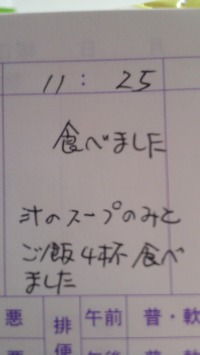 月 日
11:25
食べました
汁のスープのみと
ご飯4杯食べ
ました
悪 排便 午前 普・軟
悪 午後 普・軟